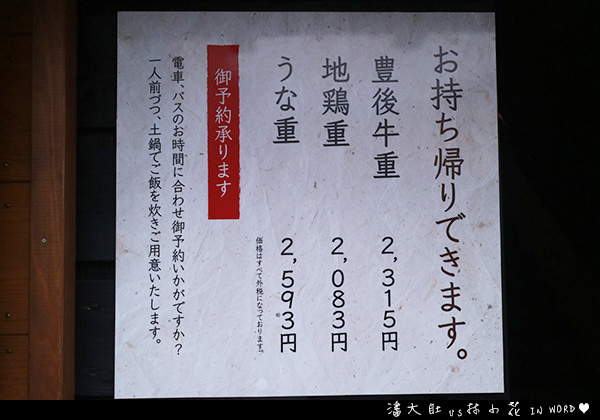 お持ち帰りできます。
豊後牛重 2,315円
地鶏重 2,083円
うな重 2,593円
価格はすべて外税になっております。
御予約承ります
電車、バスのお時間に合わせ御予約いかがですか?
一人前づつ、土鍋でご飯を炊きご用意いたします。
潘大肚 vs 林小花 IN WORD♥